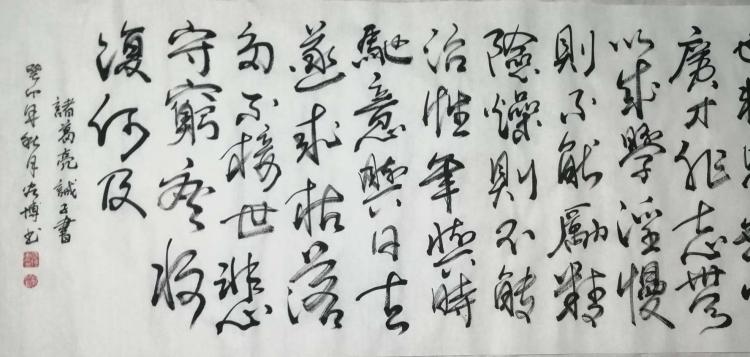 廣才非志無
以成學淫慢
則不能勵精
險躁則不能
治性年與時
馳意與日去
遂成枯落
多不接世悲
守窮廬將
復何及
諸葛亮誡子書
癸卯年秋月博书